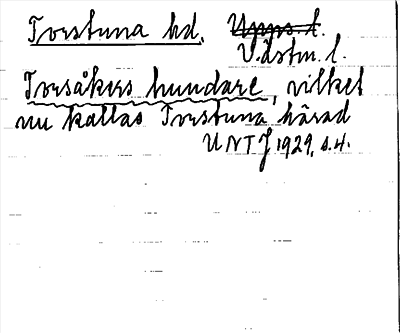 Torstuna hd. Upps. l.
Västm. l.
Torsåkers hundare, vilket
nu kallas Torstuna härad
UNTJ 1929, s. 4.